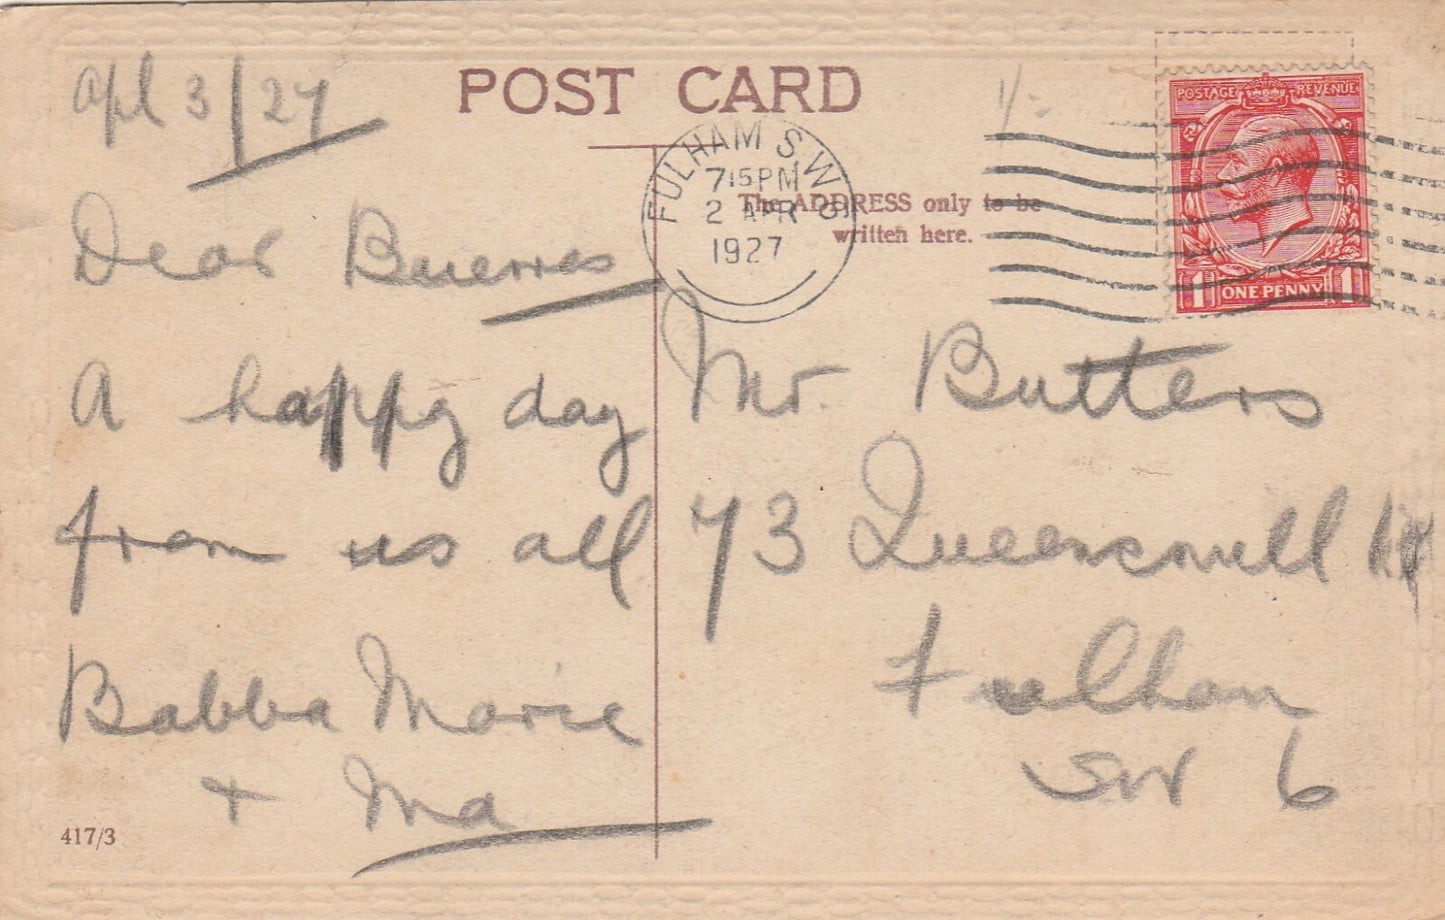 POST CARD
Apl 3/27
1/-
POSTAGE REVENUE
1 ONE PENNY 1
FULHAM S.W.6
7 15 PM
2 APR
1927
The ADDRESS only to be
written here.
Dear
A happy day
from us all
Babba Marie
+ Ma
417/3
Mr. Butters
73 Queensmill Rd
Fulham
SW 6